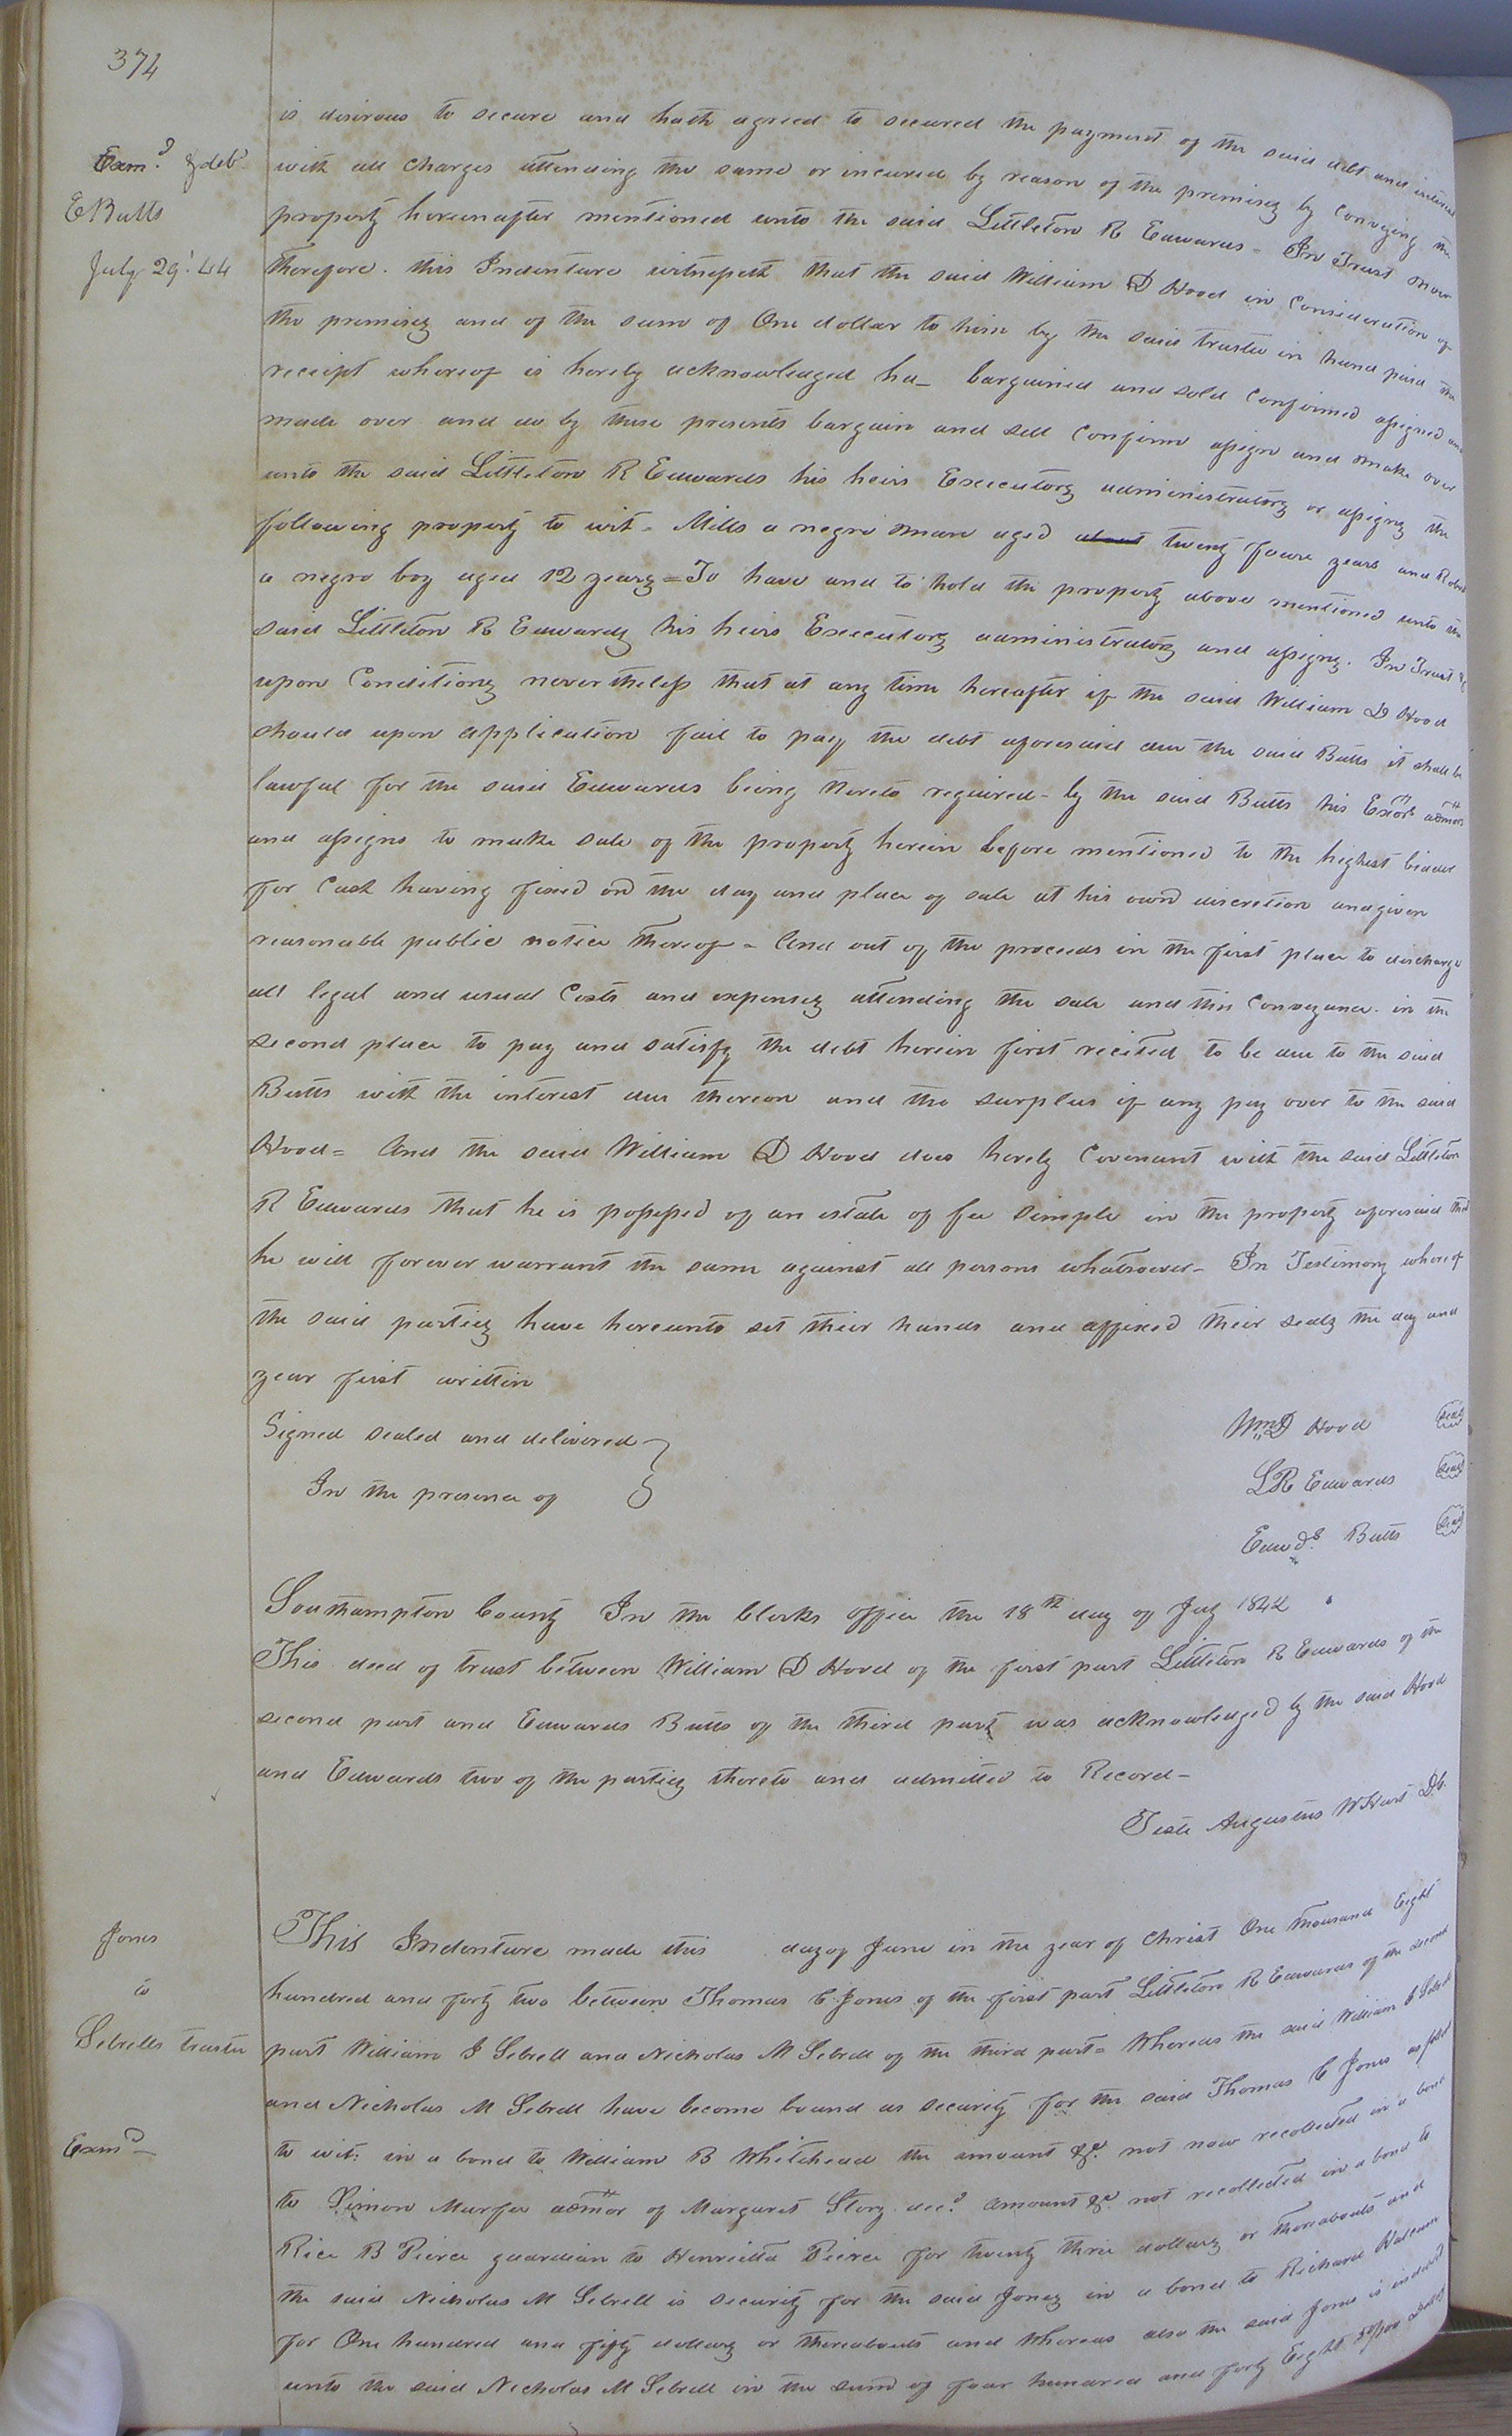 374
is desirous to secure and hath agreed to secured the payment of the said debt and interest
Exam.d & deld
with all charges attending the same or incured by reason of the premises by Conveying the
E Butts
property hereinafter mentioned unto the said Littleton R Edwards - In Trust Now
July 29th 44
therefore. this Indenture witnesseth that the said William D Hood in Consideration of
the premises and of the sum of One dollar to him by the said trustee in hand paid the
receipt whereof is hereby acknowledged ha_ bargained and sold Confirmed assigned and
made over and do by these presents bargain and sell Confirm assign and make over
unto the said Littleton R Edwards his heirs Executors administrators or assigns the
following property to wit - Mills a negro man aged about twenty foure years and Robert
a negro boy aged 12 years = To have and to hold the property above mentioned unto the
said Littleton R Edwards his heirs Executors administrators and assigns. In Trust &
upon Conditions nevertheless that at any time hereafter if the said William D Hood
should upon application fail to pay the debt aforesaid due the said Butts it shall be
lawful for the said Edwards being thereto required - by the said Butts his Exors admors
and assigns to make sale of the property herein before mentioned to the highest bidder
for Cash having fixed on the day and place of sale at his own discretion and given
reasonable public notice thereof - And out of the proceeds in the first place to discharge
all legal and usual Costs and expenses attending the sale and this Conveyance. in the
second place to pay and satisfy the debt herein first recited to be due to the said
Butts with the interest due thereon and the surplus if any pay over to the said
Hood = And the said William D Hood does hereby Covenant with the said Littleton
R Edwards that he is possessed of an estate of fee simple in the property aforesaid that
he will forever warrant the same against all persons whatsoever - In Testimony whereof
the said parties have hereunto set their hands and affixed their seals the day and
year first written
Signed sealed and delivered
In the presence of
Wm D Hood seal
L R Edwards seal
Edwds Butts seal
Southampton County In the Clerks office the 18th day of July 1842
This deed of trust between William D Hood of the first part Littleton R Edwards of the
second part and Edwards Butts of the third part was acknowledged by the said Hood
and Edwards two of the parties thereto and admitted to Record -
Teste Augustus W Hart D.C.
Jones
to
Sebrells trustee
This Indenture made this day of June in the year of Christ One thousand Eight
hundred and forty two between Thomas C Jones of the first part Littleton R Edwards of the second
part William J Sebrell and Nicholas M Sebrell of the third part = Whereas the said William J Sebrell
and Nicholas M Sebrell have become bound as security for the said Thomas C Jones as follows
Examd -
to wit: in a bond to William B Whitehead the amount &c. not now recollected in a bond
to Simon Murfee admor of Margaret Story decd. amount &c not recollected in a bond to
Rice B Pierce guardian to Henrietta Peirce for twenty three dollars or thereabouts and
the said Nicholas M Sebrell is security for the said Jones in a bond to Richard
for One hundred and fifty dollars or thereabouts and whereas also the said Jones is indebted
unto the said Nicholas M Sebrell in the sum of four hundred and forty Eight